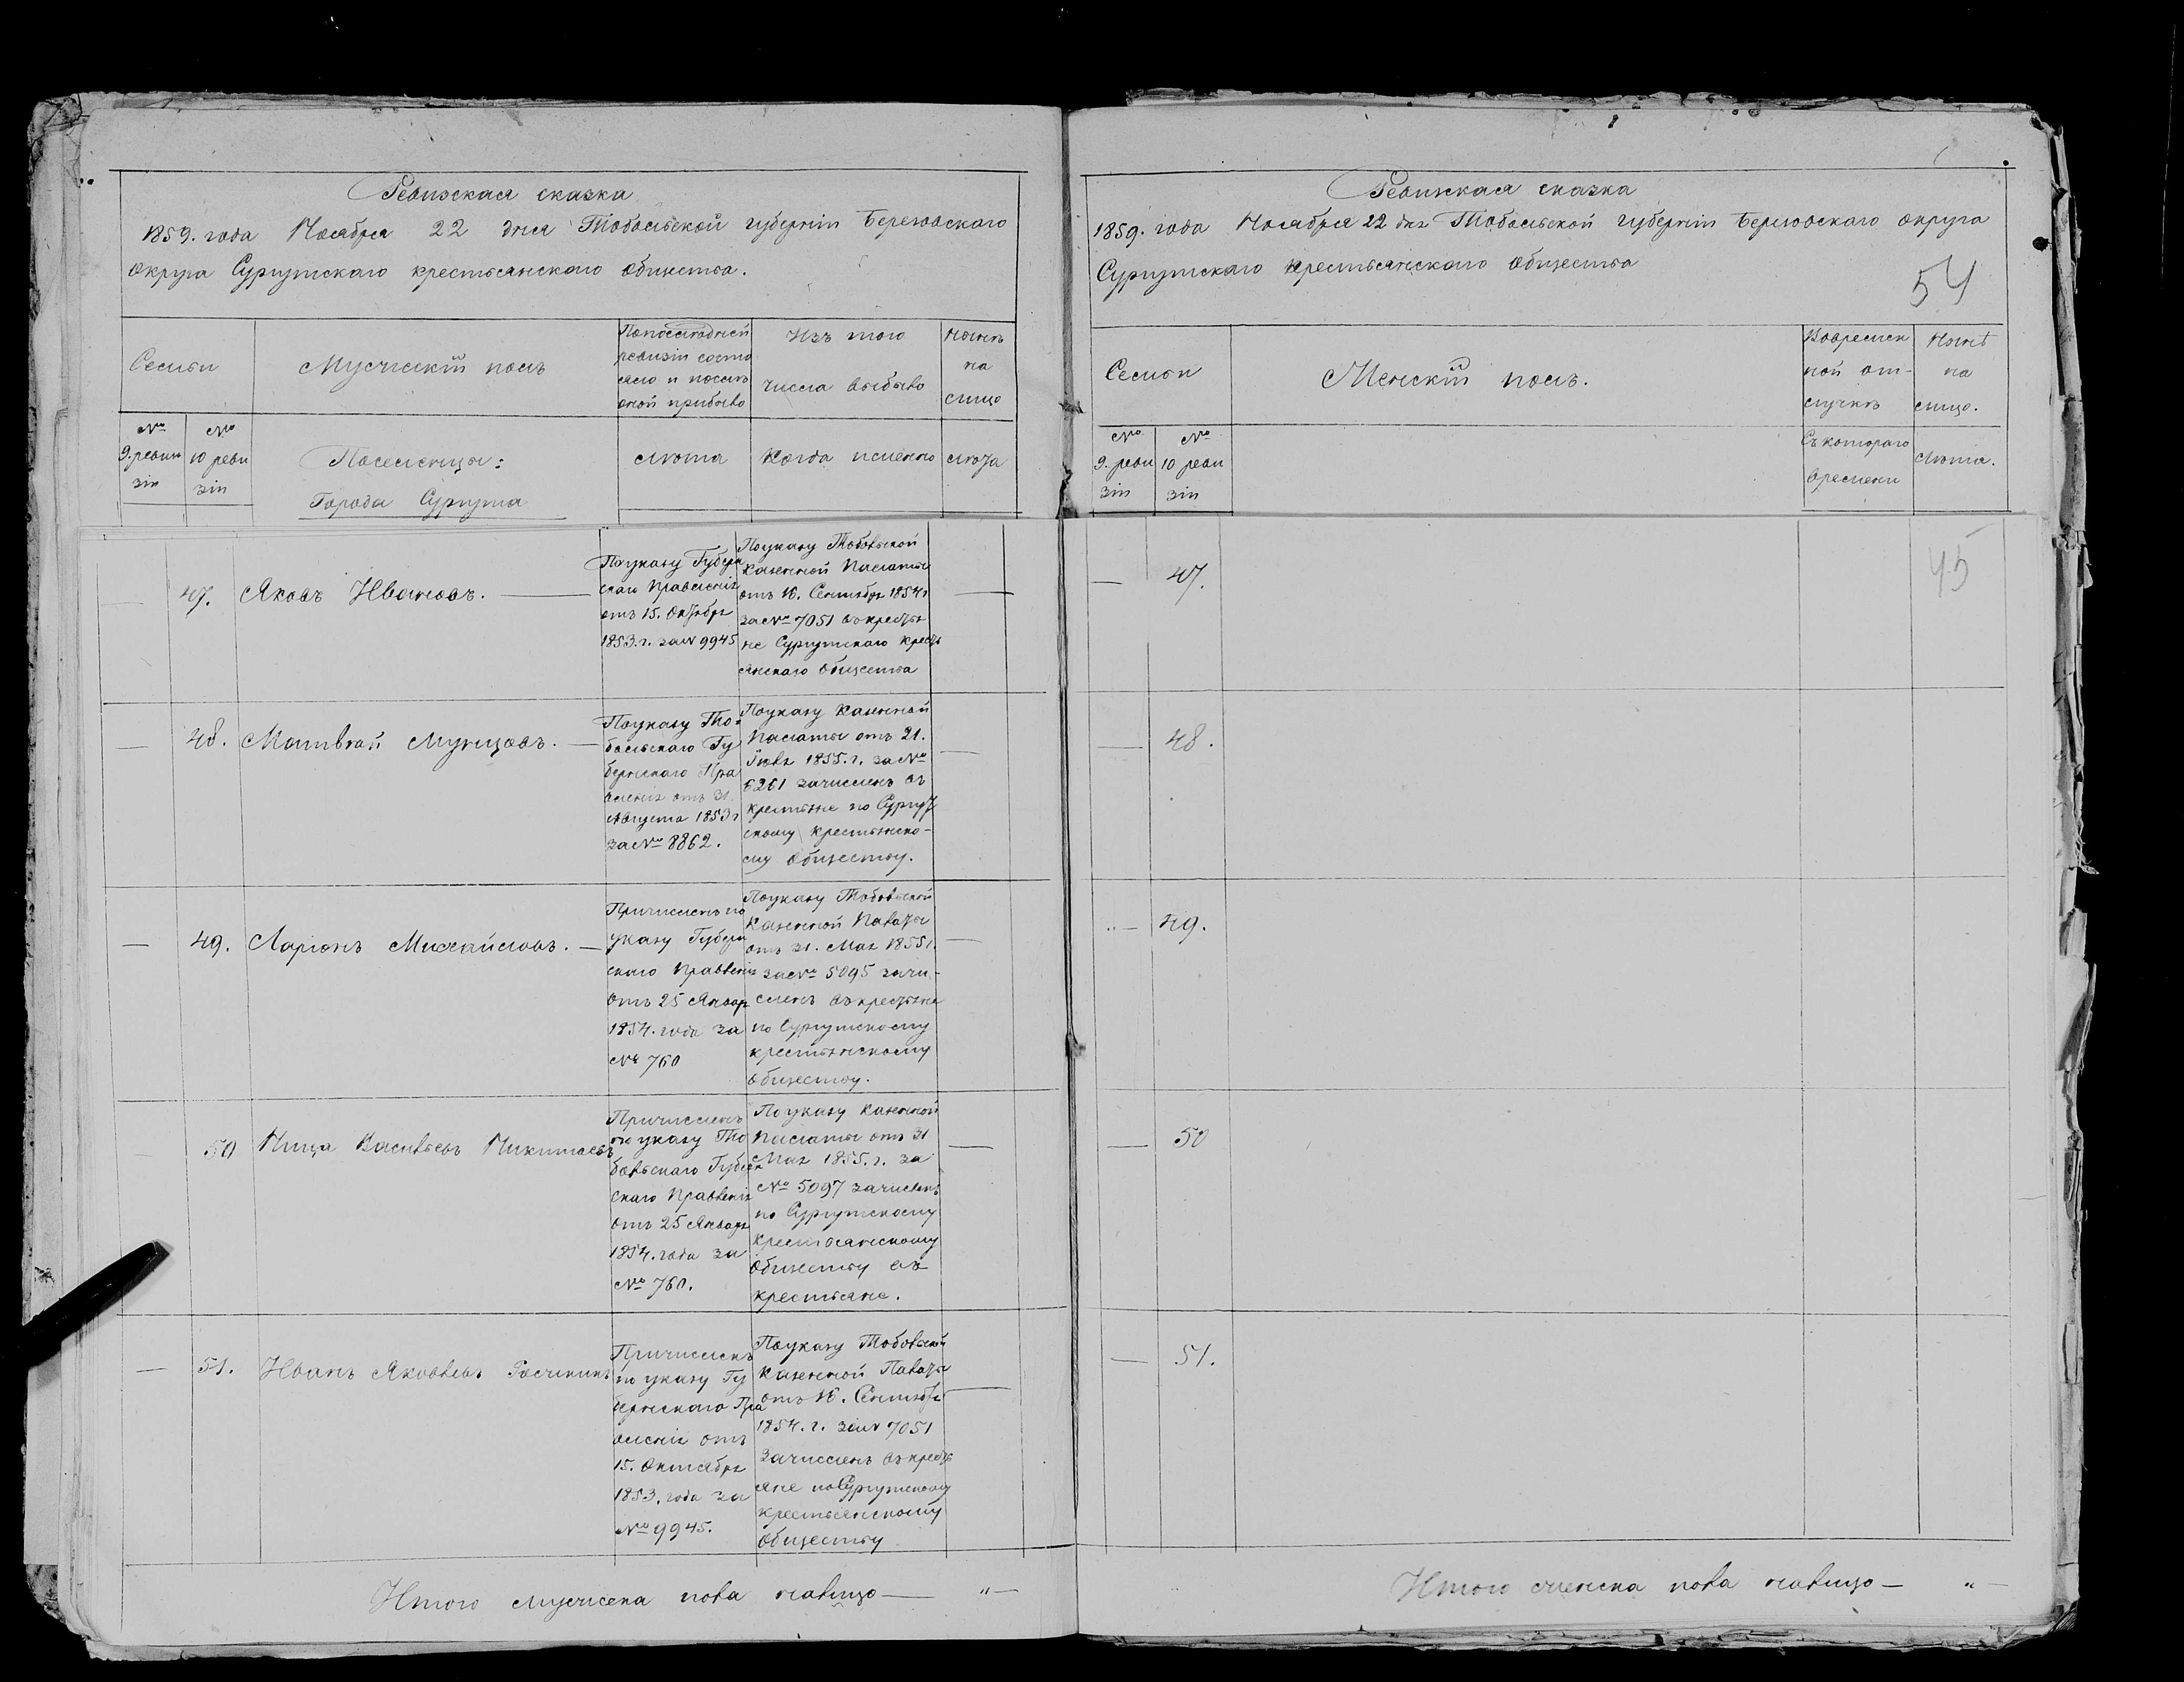 Ревизская сказка
1859. года Ноября 22 дня Тобольской губернiи Березовскаго
округа Сургутскаго крестьянскаго общества.
Семьи
Мужескiй полъ
По последней
ревизiи состо
яло и после
оной прибыло
Изъ того
числа выбыло
Ныне
на
лицо
№
9. реви
зiи
№
10 реви
зiи
Поселенцы:
Города Сургута
лета
Когда именно
лета
47.
Яковъ Ивановъ.
По указу Губерн
скаго Правленiя
отъ 15. Октября
1853. г. за № 9945
По указу Тобольской
Казенной Палаты
отъ 16. Сентября 1854 г
за № 7051 въ крестья
не Сургутскаго крестъ
янскаго общества
48.
Матвей Мунцовъ.
По указу То-
больскаго Гу
бернскаго Пра
вленiя отъ 31.
Августа 1853 г
за № 8862.
По указу Казенной
Палаты отъ 21.
Iюля 1855. г. за №
6261 зачисленъ въ
крестьяне по Сургут
скому крестьянско-
му обществу.
49.
Ларiонъ Михайловъ.
Причисленъ по
указу Губерн
скаго Правленiя
отъ 25 Января
1854. года за
№ 760
По указу Тобольской
Казенной Палаты
отъ 31. Мая 1855 г.
за № 5095 зачи-
сленъ въ крестьяне
по Сургутскому
крестьянскому
обществу.
50
Ница Васильевъ Никитаевъ
Причисленъ
по указу То
больскаго Губерн
скаго Правленiя
отъ 25 Января
1854. года за
№ 760.
По указу Казенной
Палаты отъ 31
Мая 1855. г. за
№ 5097 зачисленъ
по Сургутскому
крестьянскому
обществу въ
крестьяне.
51.
Иванъ Яковлевъ
Причисленъ
по указу Гу
бернскаго Пра
вленiя отъ
15. Октября
1853. года за
№ 9945.
По указу Тобольской
Казенной Палаты
отъ 16. Сентября
1854. г. за № 7051
зачисленъ въ кресть
яне по Сургутскому
крестьянскому
обществу
Итого мужеска пола налицо — "—
Ревизская сказка
1859. года Ноября 22 дня Тобольской губернiи Березовскаго округа
Сургутскаго крестьянскаго общества
54
Семьи
Женскiй полъ.
Во времен
ной от-
лучке
Ныне
на
лицо.
№
9. реви
зiи
№
10 реви
зiи
Съ котораго
времени
Лета.
47.
45
48.
49.
50
51.
Итого женска пола налицо — "—